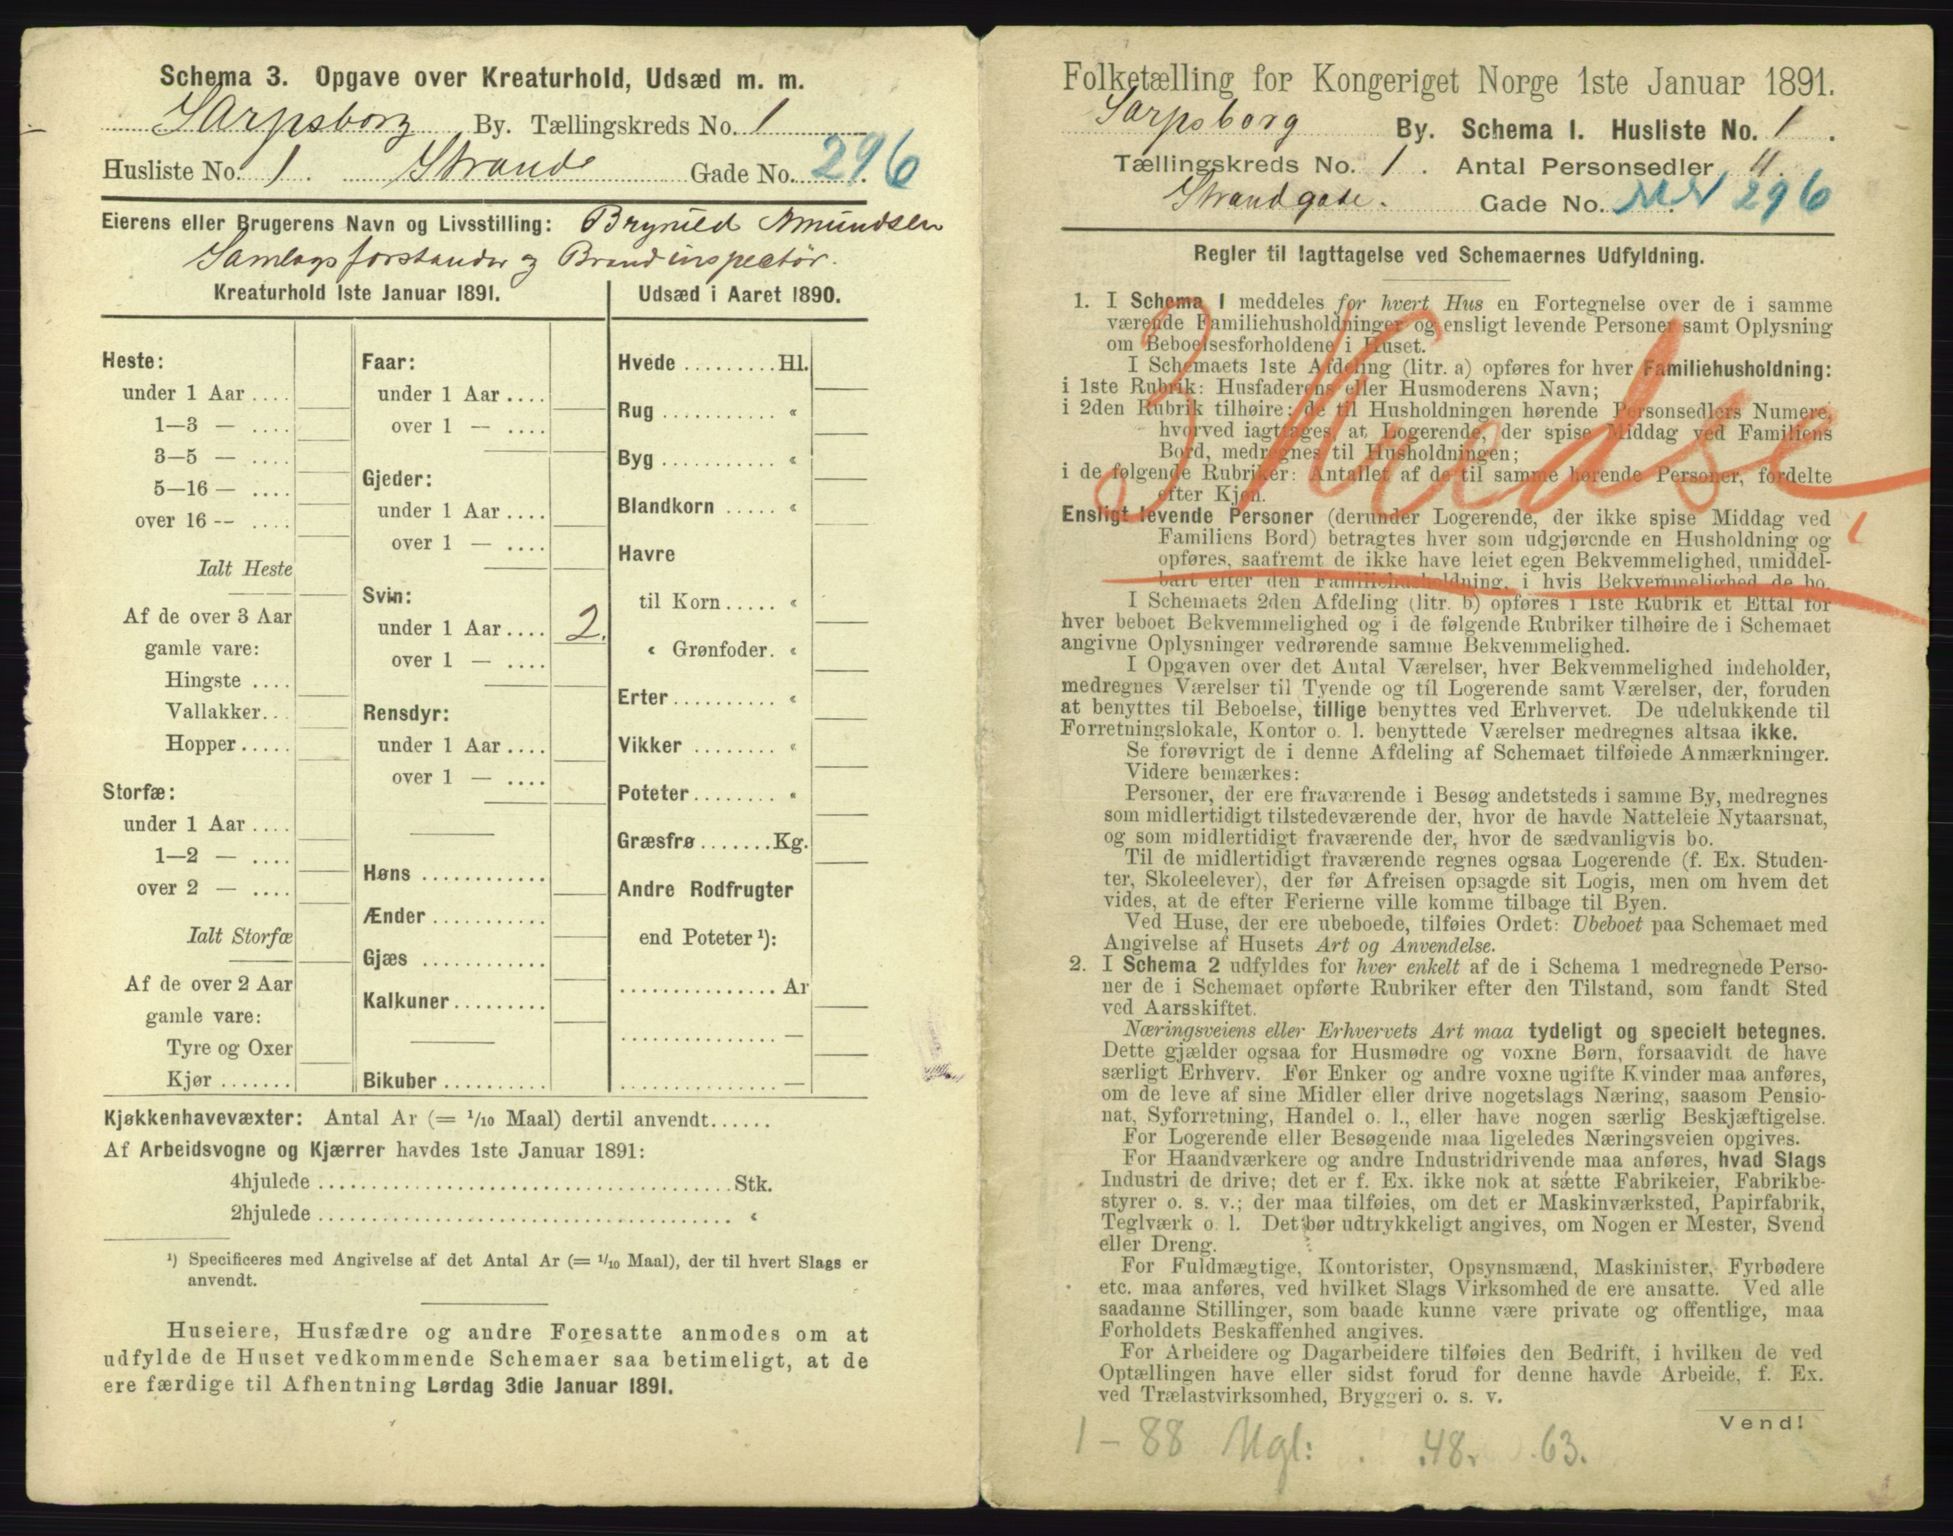 Schema 3. Opgave over Kreaturhold, Udsæd m. m.
Sarpsborg By. Tællingskreds No. 1
Husliste No. 1. Strand Gade No. 296
Eierens eller Brugerens Navn og Livsstilling: Brynild Amundsen
Samlagsforstander og Brandinspectør.
Kreaturhold 1ste Januar 1891.
Heste:
under 1 Aar ....
1—3 — ....
3—5 — ....
5—16 — ....
over 16 -- ....
Ialt Heste
Af de over 3 Aar
gamle vare:
Hingste ....
Vallakker...
Hopper.....
Storfæ:
under 1 Aar ....
1—2 — ....
over 2 — ....
Ialt Storfæ
Af de over 2 Aar
gamle vare:
Tyre og Oxer
Kjør .......
Faar:
under 1 Aar ....
over 1 — ....
Gjeder:
under 1 Aar ....
over 1 — ....
Svin:
under 1 Aar .... 2.
over 1 — ....
Rensdyr:
under 1 Aar ....
over 1 — ....
Høns ............
Ænder ..........
Gjæs ............
Kalkuner.........
Bikuber ..........
Udsæd i Aaret 1890.
Hvede .........Hl.
Rug ........... «
Byg ........... «
Blandkorn ..... «
Havre
til Korn ..... «
« Grønfoder. «
Erter .......... «
Vikker ......... «
Poteter........ «
Græsfrø .......Kg.
Andre Rodfrugter
end Poteter ¹):
............... Ar
............... —
............... —
Kjøkkenhavevæxter: Antal Ar (= 1/10 Maal) dertil anvendt......
Af Arbeidsvogne og Kjærrer havdes 1ste Januar 1891:
4hjulede ........................................Stk.
2hjulede ........................................ «
¹) Specificeres med Angivelse af det Antal Ar (= 1/10 Maal), der til hvert Slags er
anvendt.
Huseiere, Husfædre og andre Foresatte anmodes om at
udfylde de Huset vedkommende Schemaer saa betimeligt, at de
ere færdige til Afhentning Lørdag 3die Januar 1891.
Folketælling for Kongeriget Norge 1ste Januar 1891.
Sarpsborg By. Schema 1. Husliste No. 1.
Tællingskreds No. 1. Antal Personsedler 11.
Strandgade. Gade No. MN 296
Regler til Iagttagelse ved Schemaernes Udfyldning.
1. I Schema 1 meddeles for hvert Hus en Fortegnelse over de i samme
værende Familiehusholdninger og ensligt levende Personer samt Oplysning
om Beboelsesforholdene i Huset.
I Schemaets 1ste Afdeling (litr. a) opføres for hver Familiehusholdning:
i 1ste Rubrik: Husfaderens eller Husmoderens Navn;
i 2den Rubrik tilhøire: de til Husholdningen hørende Personsedlers Numere,
hvorved iagttages, at Logerende, der spise Middag ved Familiens
Bord, medregnes til Husholdningen;
i de følgende Rubriker: Antallet af de til samme hørende Personer, fordelte
efter Kjøn.
3 Kredse
Ensligt levende Personer (derunder Logerende, der ikke spise Middag ved
Familiens Bord) betragtes hver som udgjørende en Husholdning og
opføres, saafremt de ikke have leiet egen Bekvemmelighed, umiddel-
bart efter den Familiehusholdning, i hvis Bekvemmelighed de bo.
I Schemaets 2den Afdeling (litr. b) opføres i 1ste Rubrik et Ettal for
hver beboet Bekvemmelighed og i de følgende Rubriker tilhøire de i Schemaet
angivne Oplysninger vedrørende samme Bekvemmelighed.
I Opgaven over det Antal Værelser, hver Bekvemmelighed indeholder,
medregnes Værelser til Tyende og til Logerende samt Værelser, der, foruden
at benyttes til Beboelse, tillige benyttes ved Erhvervet. De udelukkende til
Forretningslokale, Kontor o. l. benyttede Værelser medregnes altsaa ikke.
Se forøvrigt de i denne Afdeling af Schemaet tilføiede Anmærkninger.
Videre bemærkes:
Personer, der ere fraværende i Besøg andetsteds i samme By, medregnes
som midlertidigt tilstedeværende der, hvor de havde Natteleie Nytaarsnat,
og som midlertidigt fraværende der, hvor de sædvanligvis bo.
Til de midlertidigt fraværende regnes ogsaa Logerende (f. Ex. Studen-
ter, Skoleelever), der før Afreisen opsagde sit Logis, men om hvem det
vides, at de efter Ferierne ville komme tilbage til Byen.
Ved Huse, der ere ubeboede, tilføies Ordet: Ubeboet paa Schemaet med
Angivelse af Husets Art og Anvendelse.
2. I Schema 2 udfyldes for hver enkelt af de i Schema 1 medregnede Perso-
ner de i Schemaet opførte Rubriker efter den Tilstand, som fandt Sted
ved Aarsskiftet.
Næringsveiens eller Erhvervets Art maa tydeligt og specielt betegnes.
Dette gjælder ogsaa for Husmødre og voxne Børn, forsaavidt de have
særligt Erhverv. For Enker og andre voxne ugifte Kvinder maa anføres,
om de leve af sine Midler eller drive nogetslags Næring, saasom Pensio-
nat, Syforretning, Handel o. l., eller have nogen særlig Beskjæftigelse.
For Logerende eller Besøgende maa ligeledes Næringsveien opgives.
For Haandværkere og andre Industridrivende maa anføres, hvad Slags
Industri de drive; det er f. Ex. ikke nok at sætte Fabrikeier, Fabrikbe-
styrer o. s. v.; der maa tilføies, om det er Maskinværksted, Papirfabrik,
Teglværk o. l. Det bør udtrykkeligt angives, om Nogen er Mester, Svend
eller Dreng.
For Fuldmægtige, Kontorister, Opsynsmænd, Maskinister, Fyrbødere
etc. maa anføres, ved hvilket Slags Virksomhed de ere ansatte. Ved alle
saadanne Stillinger, som baade kunne være private og offentlige, maa
Forholdets Beskaffenhed angives.
For Arbeidere og Dagarbeidere tilføies den Bedrift, i hvilken de ved
Optællingen have eller sidst forud for denne havde Arbeide, f. Ex.
ved Trælastvirksomhed, Bryggeri o. s. v.
Vend!
1 - 88 Mgl: . 48. . 63.